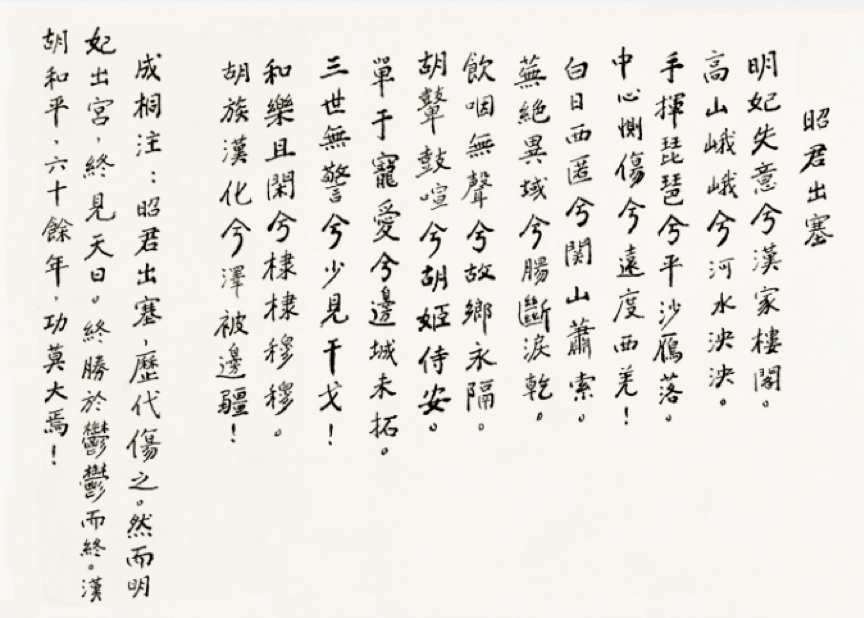 昭君出塞
明妃失意兮漢家樓閣。
高山峨峨兮河水泱泱。
手揮琵琶兮平沙雁落。
中心惻傷兮遠度西羌！
白日西匿兮関山蕭索。
蕪絕異域兮腸斷淚乾。
飲咽無聲兮故鄉永隔。
胡鼙鼓喧兮胡姬侍安。
單于寵愛兮邊城未拓。
三世無警兮少見干戈！
和樂且閑兮棣棣穆穆。
胡族漢化兮澤被邊疆！
成桐注：昭君出塞，歷代傷之。然而明
妃出宮，終見天日。終勝於鬱鬱而終。漢
胡和平，六十餘年，功莫大焉！